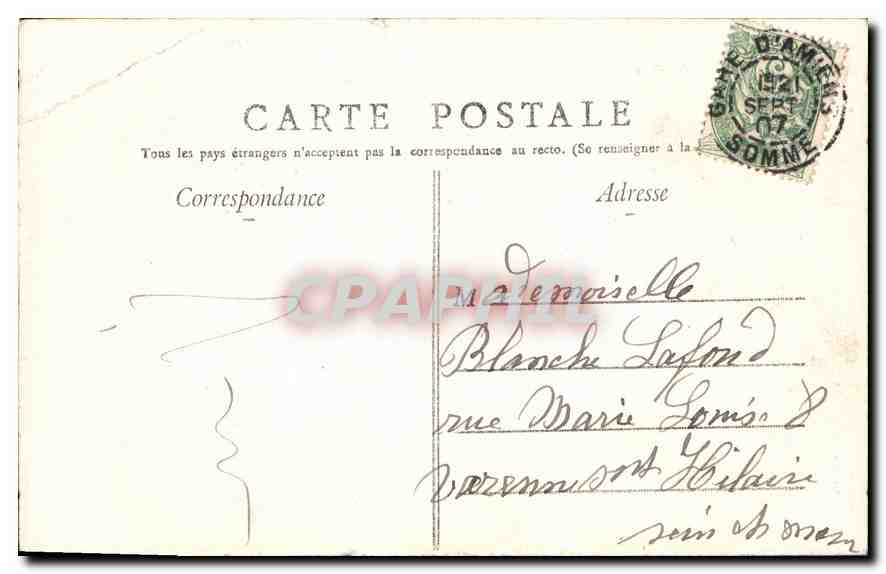 CARTE POSTALE
Tous les pays étrangers n'acceptent pas la correspondance au recto. (Se renseigner à la
Correspondance
Adresse
GARE D'AMIENS
21
SEPT
07
SOMME
CPAPHIL
Mademoiselle
Blanche Lafond
rue Marie Louise 8
Varenne St Hilaire